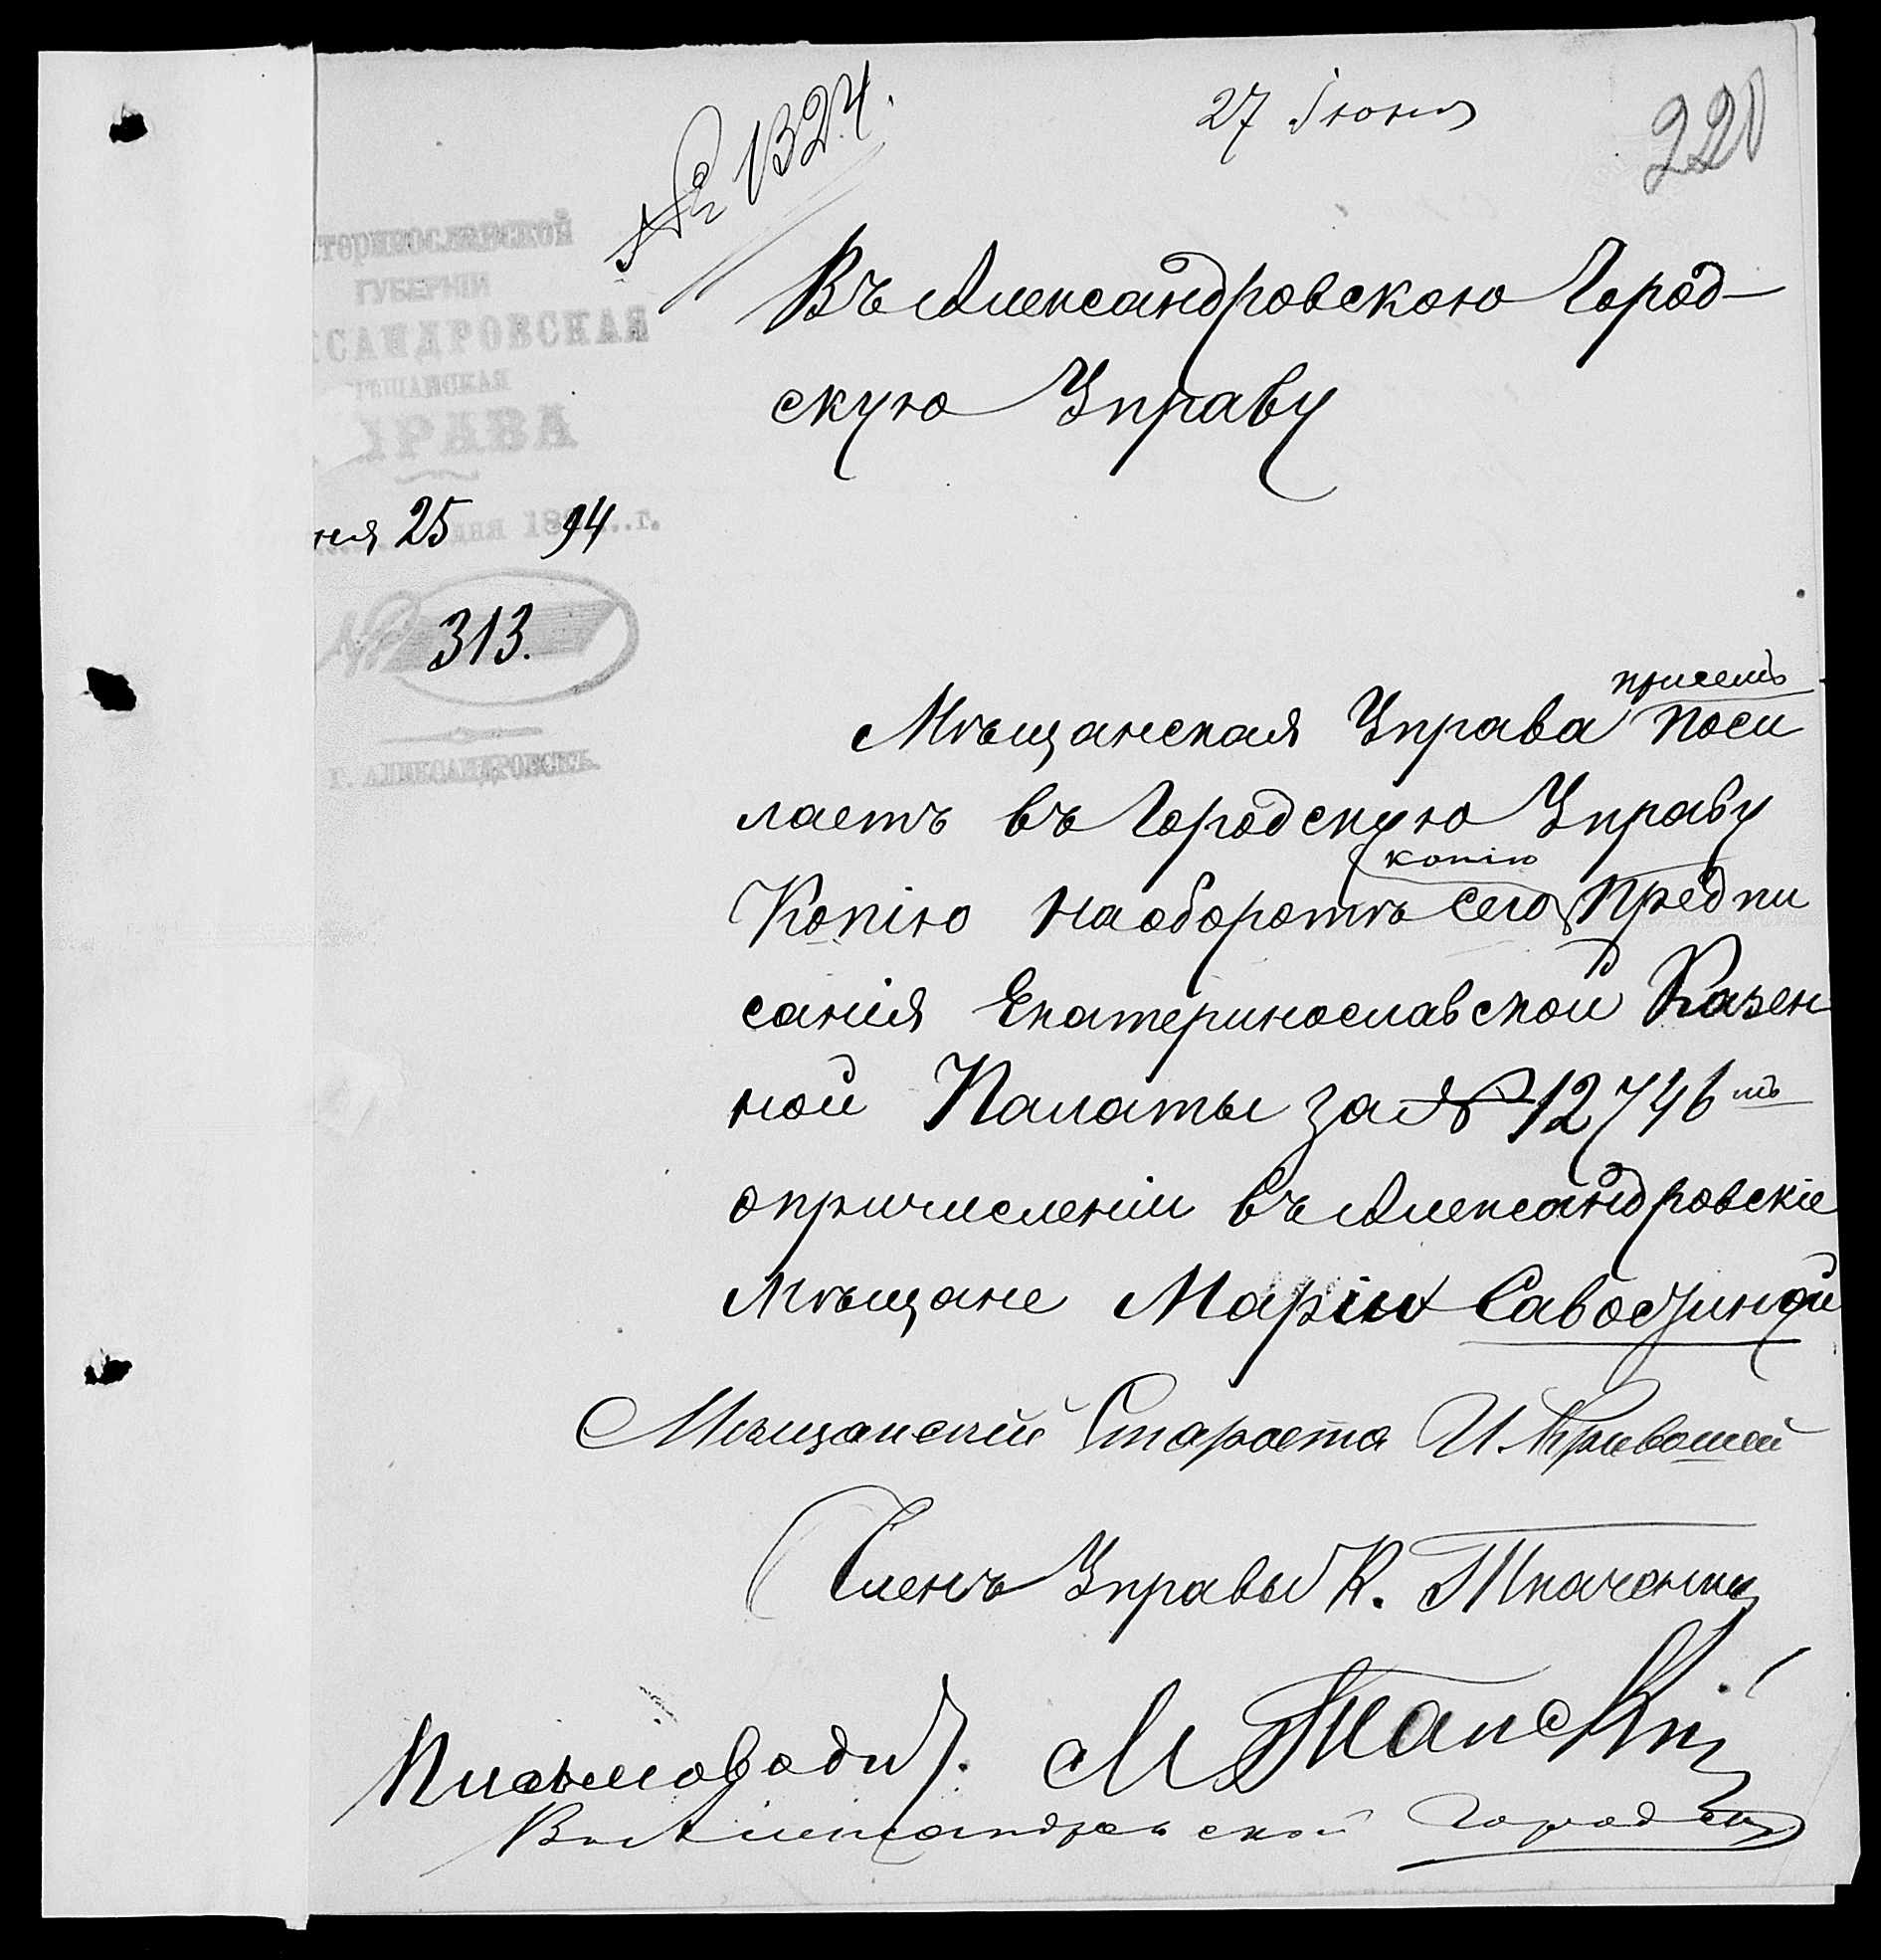 № 1324.
27 Іюня
220
теринославской
ГУБЕРНІИ
КСАНДРОВСКАЯ
ѢЩАНСКАЯ
ПРАВА
ня 25 дня 1894 г.
№ 313.
г. АЛЕКСАНДРОВСКЪ.
Въ Александровскою Город-
скую Управу
Мѣщанская Управа присемъ поси
лаетъ въ Городскую Управу
Копію на оборотѣ сего копію Предпи
санія Екатеринославской Казен
ной Палаты за № 12746 мъ
о причисленіи въ Александровскіе
мѣщане Маріи
Мѣщанскій Староста И. Кривошей
Членъ Управы К. Ткаченко
Письмоводит. М
В Александровской Городск